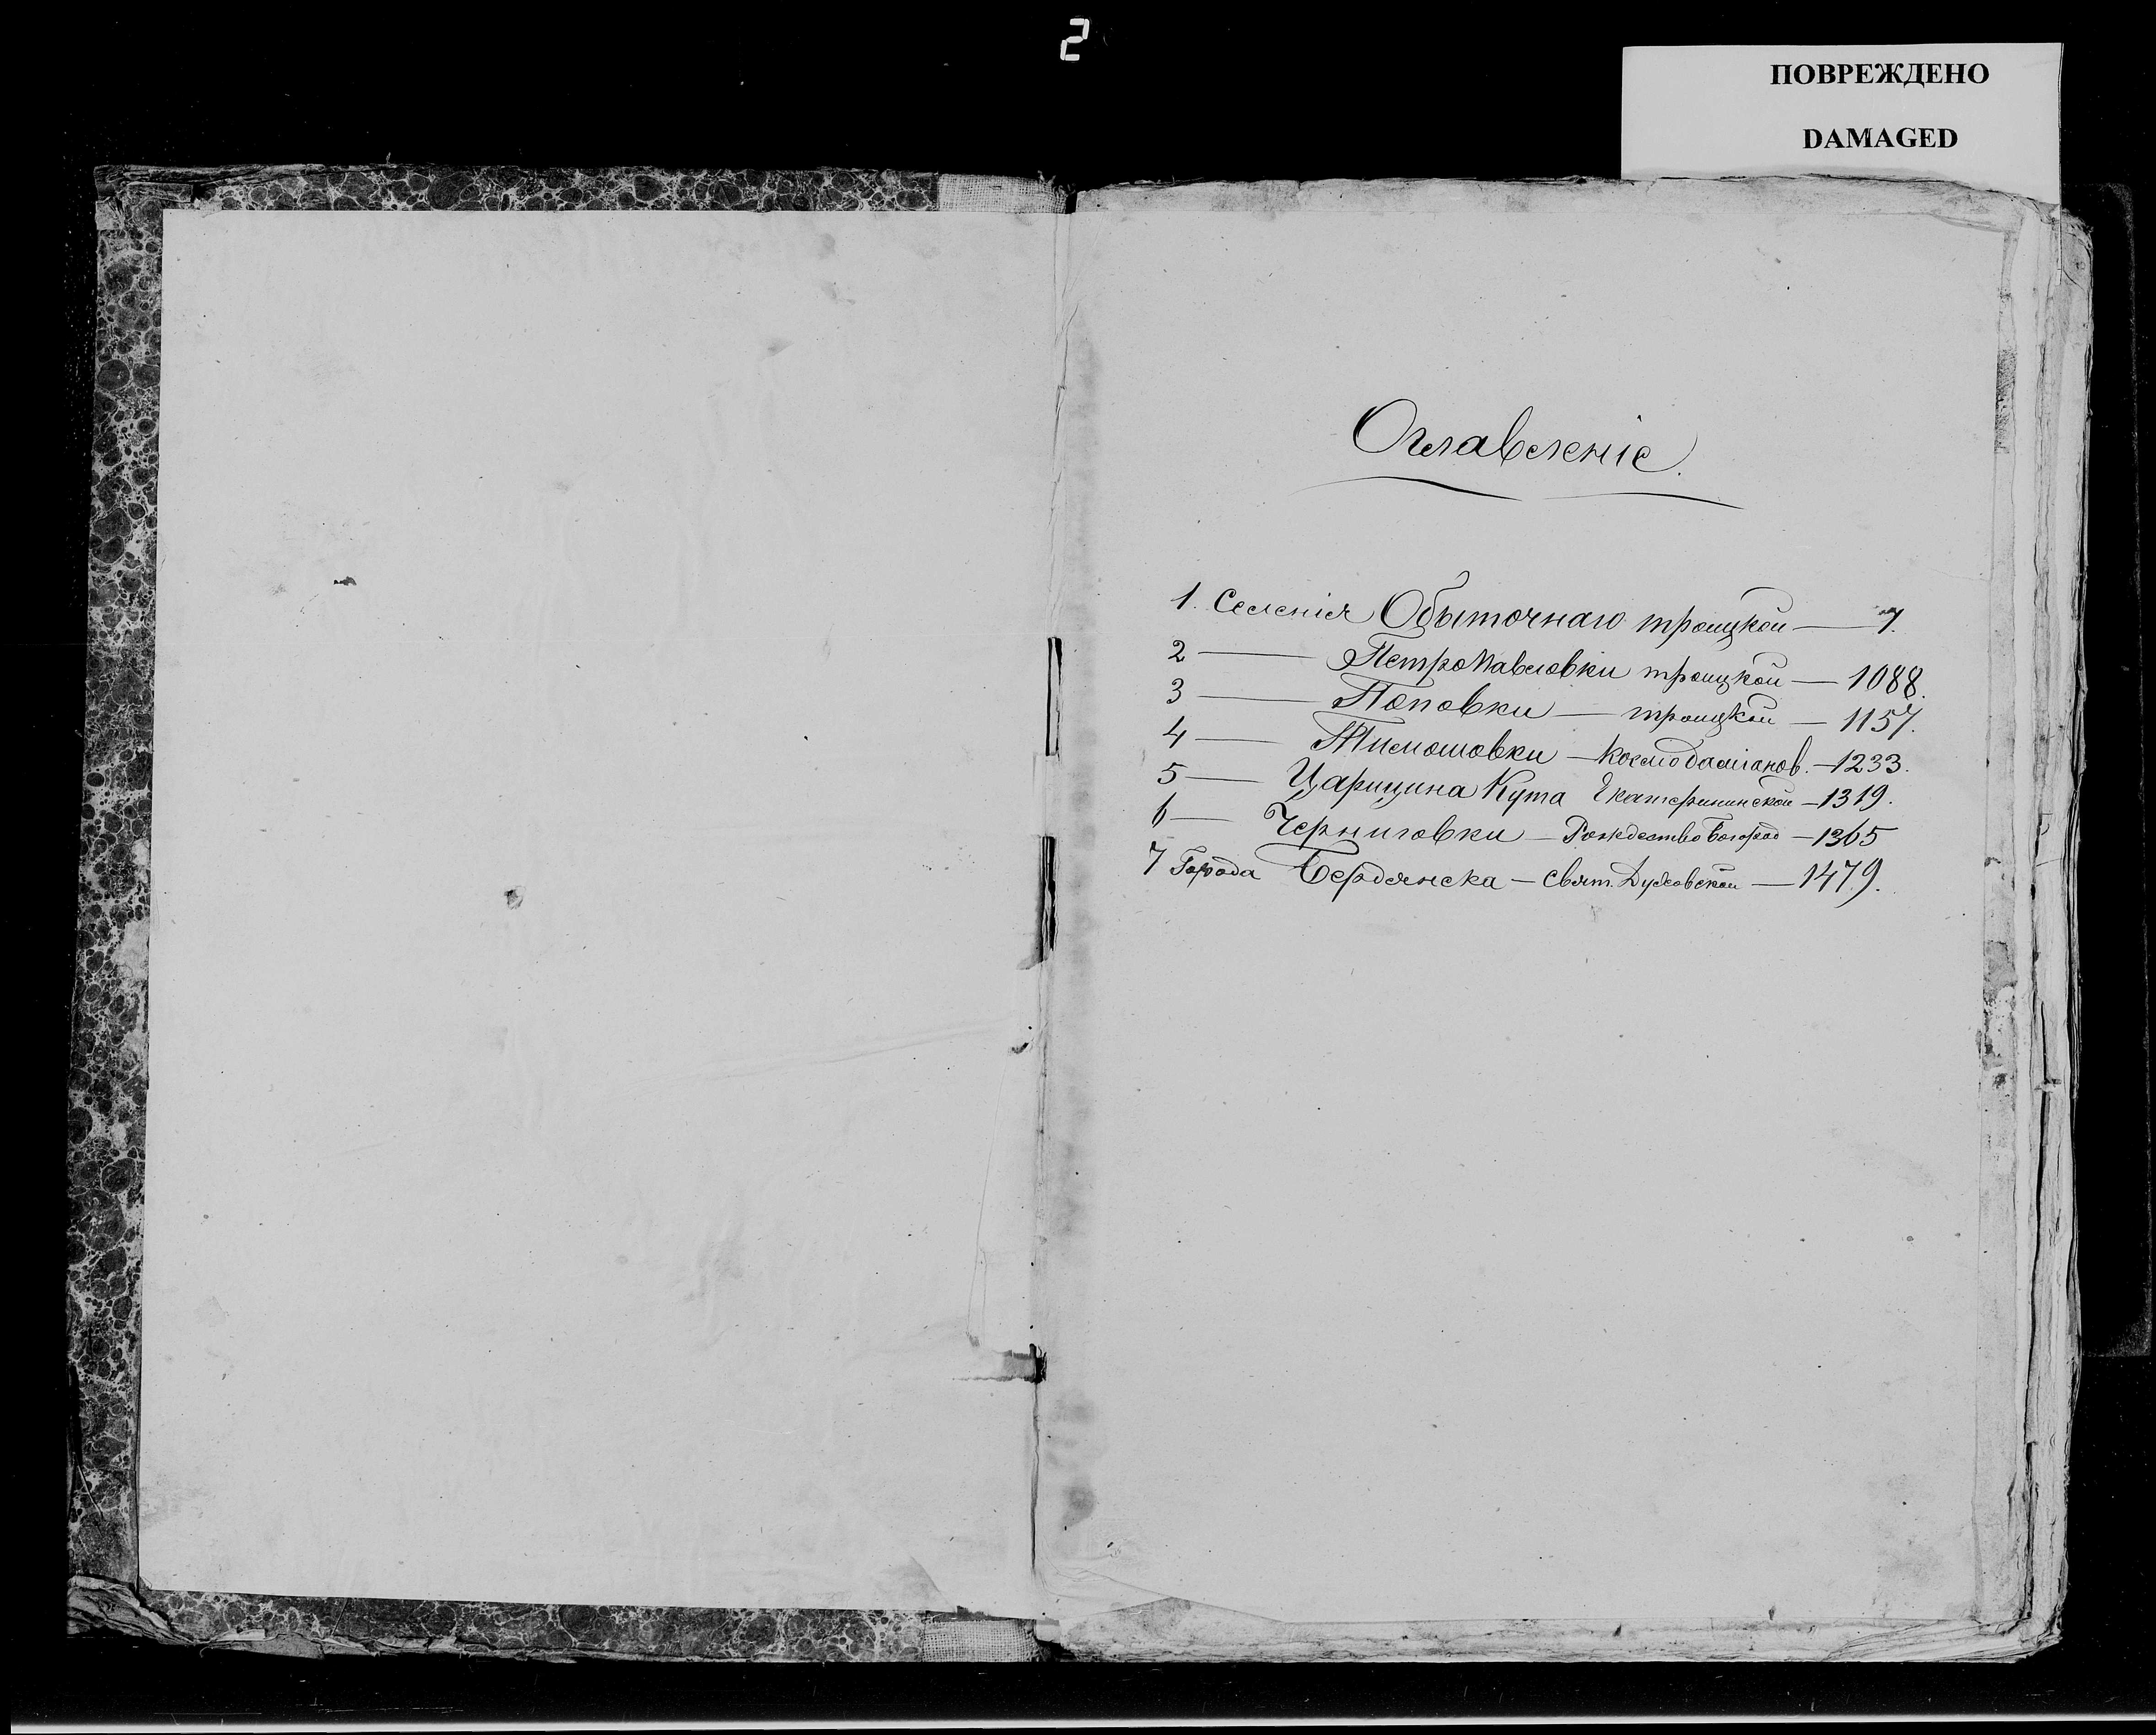 2
ПОВРЕЖДЕНО
DAMAGED
Оглавленіе.
1. Селенія Обыточнаго троицкой — 7.
2 — ПетроПавловки троицкой — 1088.
3 — Поповки — троицкой — 1157.
4 — Тимошовки — Космодаміанов. — 1233.
5 — Царицина Кута Екатерининской — 1319.
6 — Черниговки — Рождество Богород — 1365
7 Города Бердянска — Свят. Духовской — 1479.